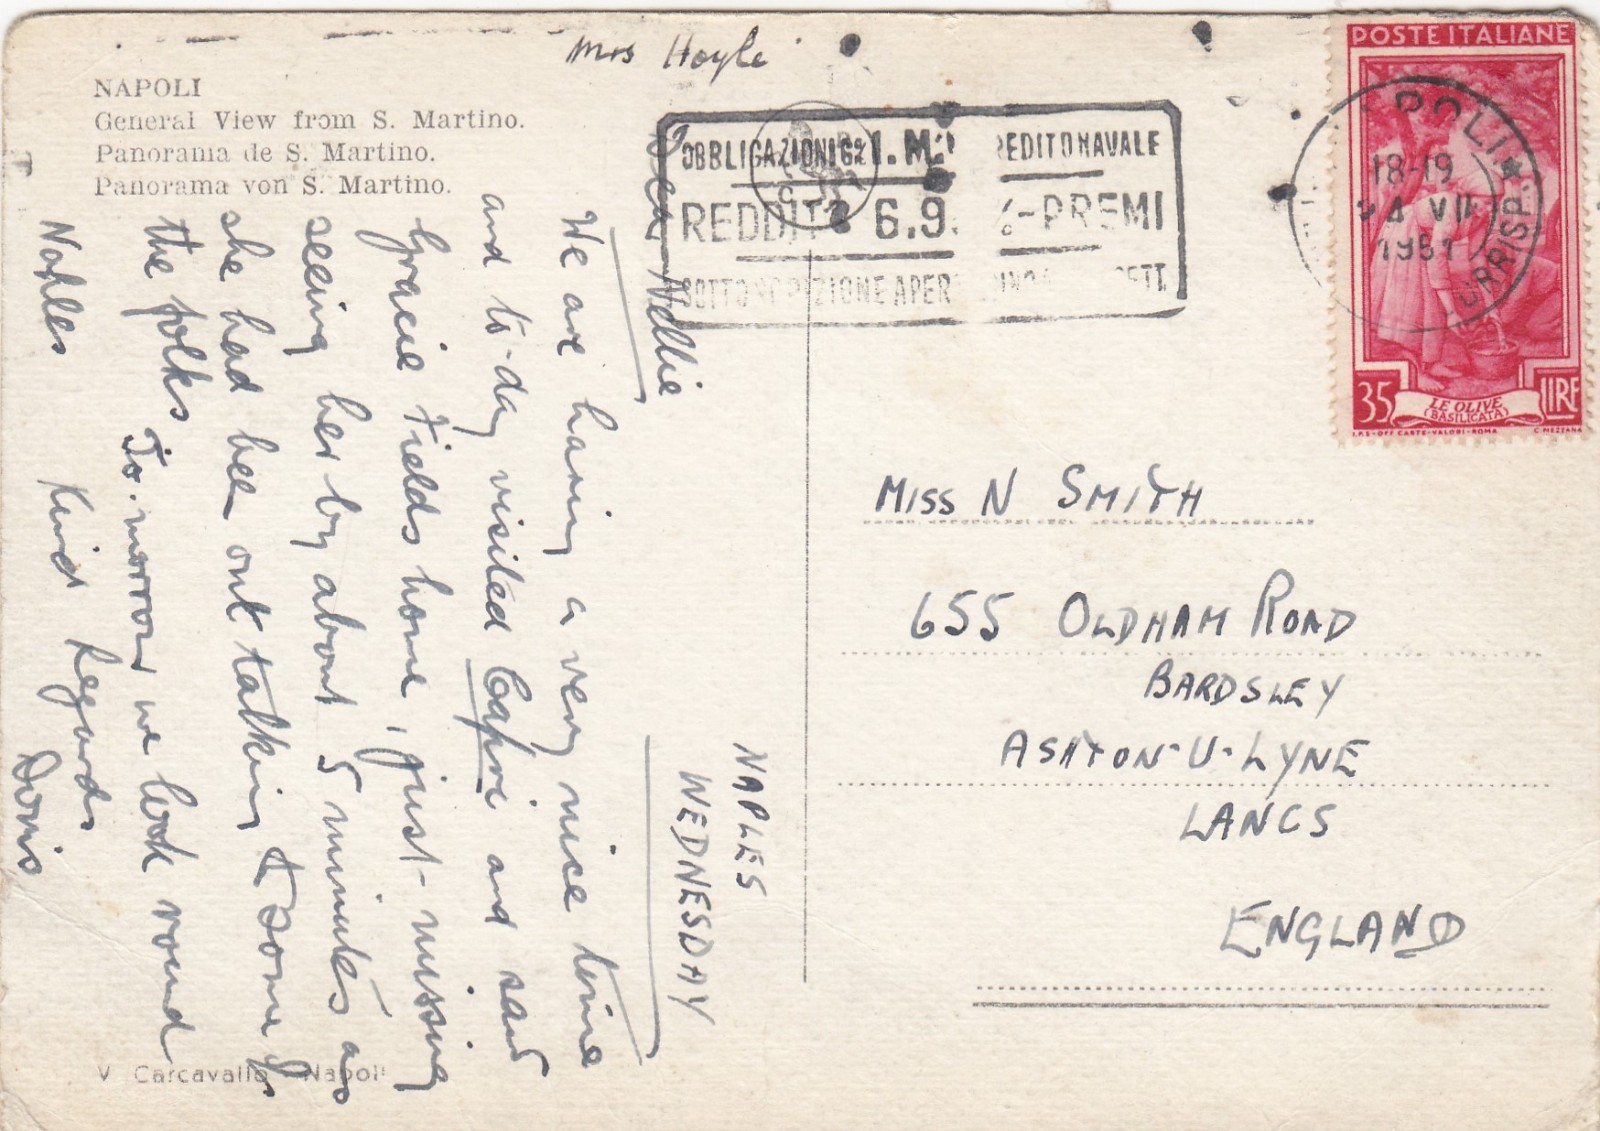 Mrs Hoyle
NAPOLI
General View from S. Martino.
Panorama de S. Martino.
Panorama von S. Martino.
NAPLES
WEDNESDAY
Dear Nellie
We are having a very nice time
and to-day visited Capri and saw
Gracie Fields home, just missing
seeing her by about 5 minutes as
she had been out talking to some of
the folks
To-morrow we look round
Naples Kind Regards Doris
V Carcavallo Napoli
OBBLIGAZIONI 6% I.M. CREDITO NAVALE
REDDITO 6.9 %-PREMI
SOTTOSCRIZIONE
POLI
18-19
4 VII
1951
CORRISP.
POSTE ITALIANE
35 LIRE
LE OLIVE
(BASILICATA)
I.P.S-OFF. CARTE-VALORI-ROMA C. MEZZANA
MISS N SMITH
655 OLDHAM ROAD
BARDSLEY
ASHTON-U-LYNE
LANCS
ENGLAND